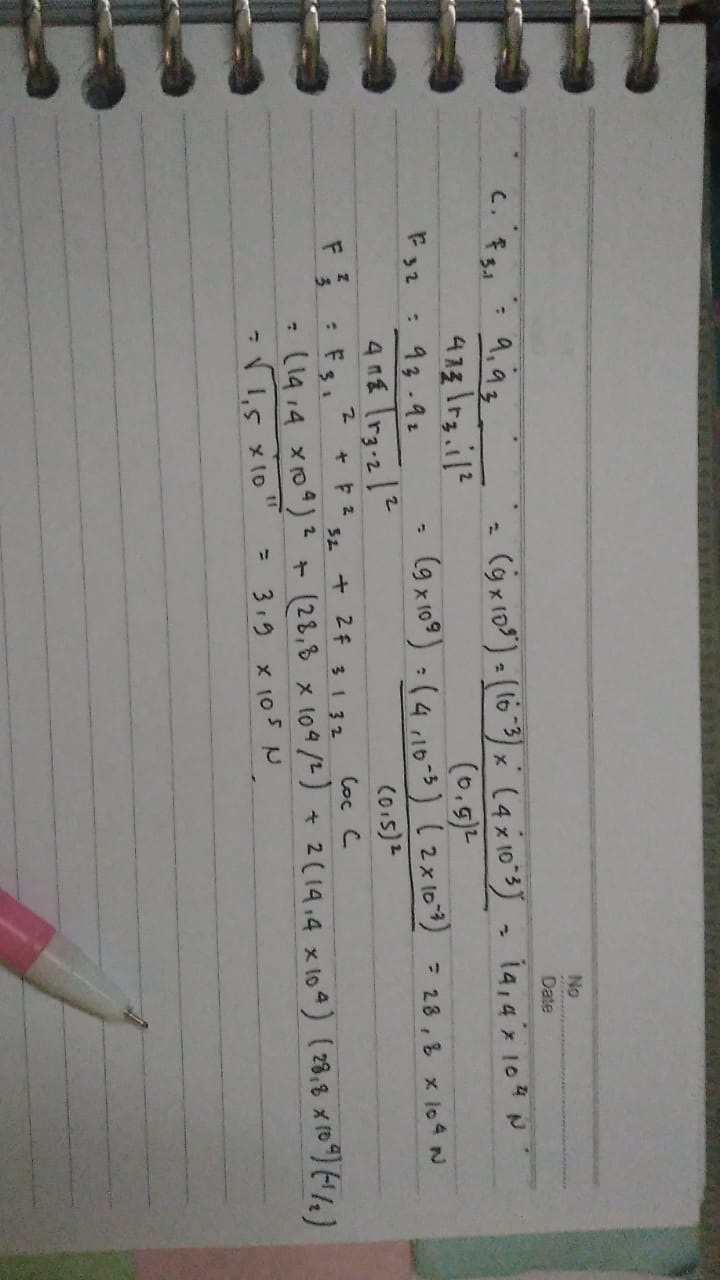 No
Date
C. F₃₁ = q₁q₃ / 4πε|r₃.₁|² = (9x10⁹) = (10⁻³) x (4x10⁻³) / (0,5)² = 14,4 x 10⁴ N
F₃₂ = q₃.q₂ / 4πε|r₃.₂|² = (9x10⁹) = (4,10⁻³) (2x10⁻³) / (0,5)² = 28,8 x 10⁴ N
F²₃ = F₃₁² + F²₃₂ + 2F ₃₁₃₂ Coc C
= (14,4 x10⁴)² + (28,8 x 10⁴/2) + 2(14,4 x10⁴) (28,8 x10⁴)(-1/2)
= √1,5 x10¹¹ = 3,9 x 10⁵ N.